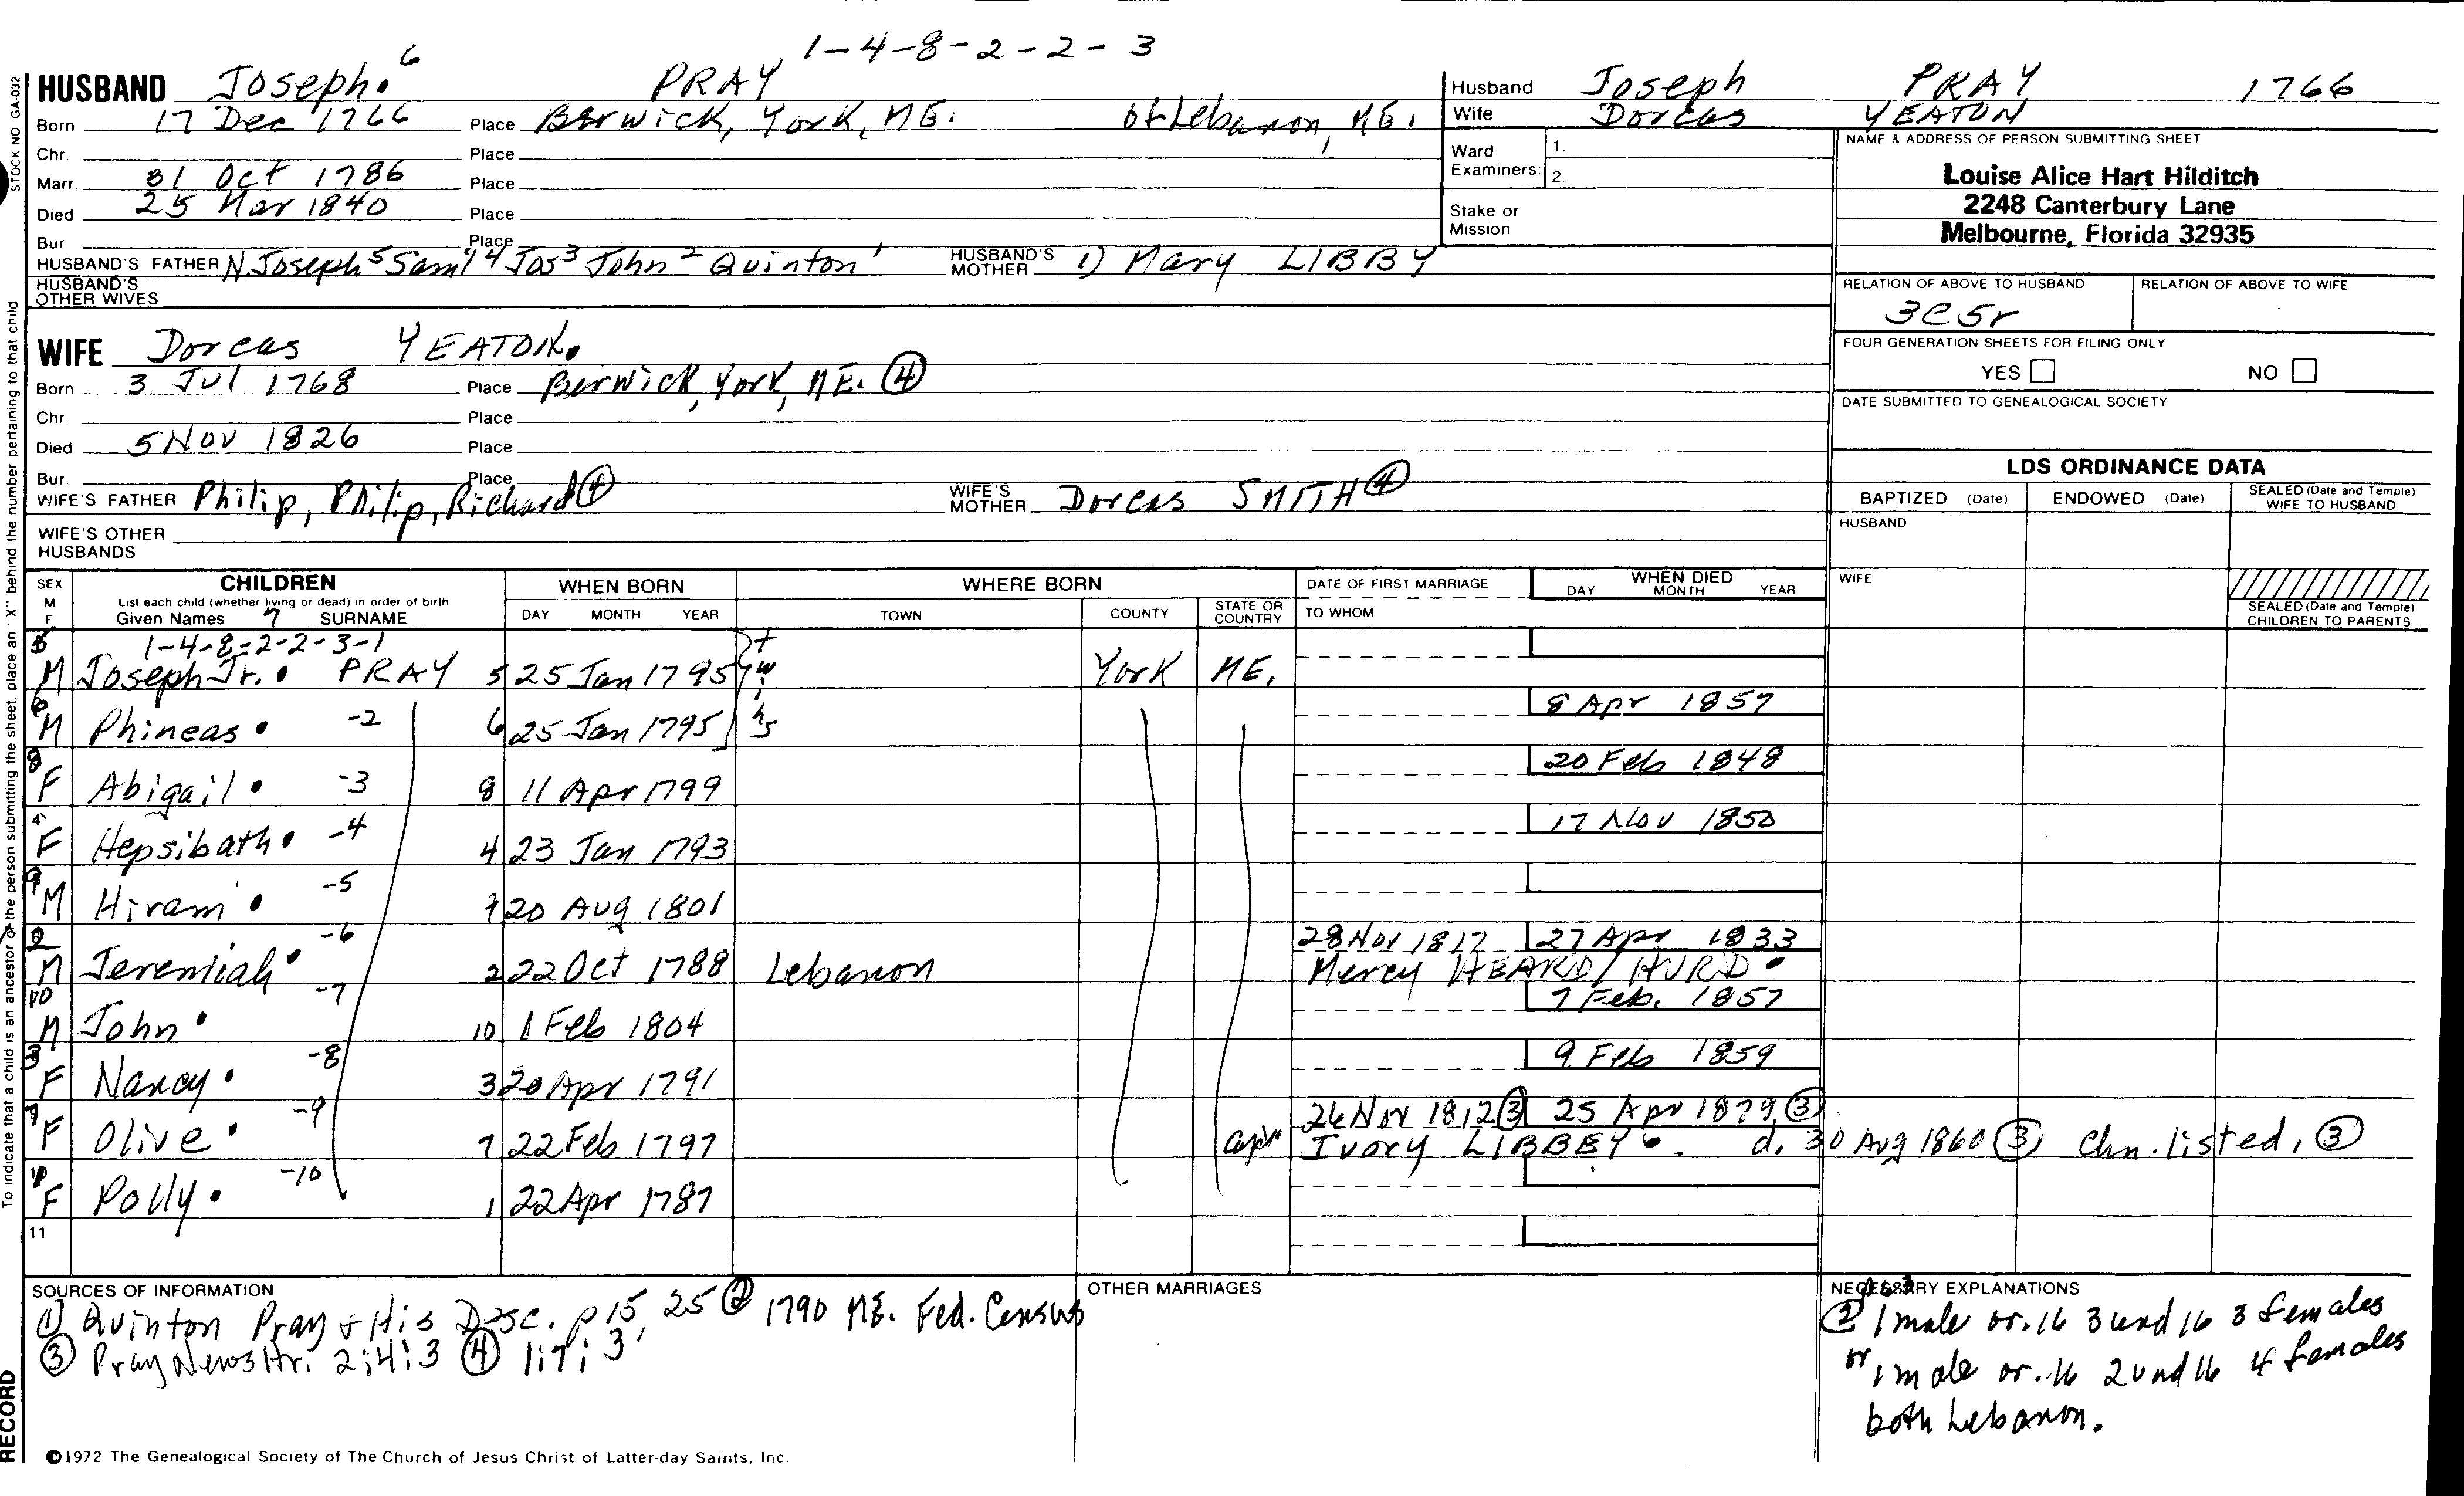 1-4-8-2-2-3
HUSBAND Joseph. 6 PRAY
Born 17 Dec 1766 Place Berwick, York, ME. of Lebanon, ME.
Chr. Place
Marr 31 Oct 1786 Place
Died 25 Mar 1840 Place
Bur. Place
HUSBAND'S FATHER N. Joseph 5 Saml 4 Jos 3 John 2 Quinton 1 HUSBAND'S MOTHER 1) Mary LIBBY
HUSBAND'S OTHER WIVES
Husband Joseph PRAY 1766
Wife Dorcas YEATON
Ward Examiners: 1. 2
Stake or Mission
NAME & ADDRESS OF PERSON SUBMITTING SHEET
Louise Alice Hart Hilditch
2248 Canterbury Lane
Melbourne, Florida 32935
RELATION OF ABOVE TO HUSBAND RELATION OF ABOVE TO WIFE
3c5r
FOUR GENERATION SHEETS FOR FILING ONLY
YES NO
DATE SUBMITTED TO GENEALOGICAL SOCIETY
WIFE Dorcas YEATON.
Born 3 Jul 1768 Place Berwick, York, ME. ④
Chr. Place
Died 5 Nov 1826 Place
Bur. Place
WIFE'S FATHER Philip, Philip, Richard ④ WIFE'S MOTHER Dorcas SMITH ④
WIFE'S OTHER HUSBANDS
LDS ORDINANCE DATA
BAPTIZED (Date) ENDOWED (Date) SEALED (Date and Temple) WIFE TO HUSBAND
HUSBAND
WIFE
SEALED (Date and Temple) CHILDREN TO PARENTS
SEX M F CHILDREN WHEN BORN WHERE BORN DATE OF FIRST MARRIAGE WHEN DIED
List each child (whether living or dead) in order of birth
Given Names 7 SURNAME DAY MONTH YEAR TOWN COUNTY STATE OR COUNTRY TO WHOM DAY MONTH YEAR
5 1-4-8-2-2-3-1
M Joseph Jr. PRAY 5 25 Jan 1795 twins York ME.
6 8 Apr 1857
M Phineas. -2 6 25 Jan 1795
8 20 Feb 1848
F Abigail. -3 8 11 Apr 1799
4 17 Nov 1850
F Hepsibath. -4 4 23 Jan 1793
9
M Hiram. -5 9 20 Aug 1801
2 28 Nov 1817 27 Apr 1833
M Jeremiah. -6 2 22 Oct 1788 Lebanon Mercy HEARD/HURD.
10 7 Feb. 1857
M John. -7 10 1 Feb 1804
3 9 Feb 1859
F Nancy. -8 3 20 Apr 1791
7 26 Nov 1812 ③ 25 Apr 1879 ③
F Olive. -9 7 22 Feb 1797 Ivory LIBBEY. d. 30 Aug 1860 ③ Chn. listed, ③
F Polly. -10 1 22 Apr 1787
11
SOURCES OF INFORMATION
① Quinton Pray & His Desc. p 15, 25 ② 1790 ME. Fed. Census
③ Pray Newsltr. 2:4:3 ④ 1:7:3
OTHER MARRIAGES
NECESSARY EXPLANATIONS
② 1 male ov. 16 3 und 16 3 females
or 1 male ov. 16 2 und 16 4 females
both Lebanon.
©1972 The Genealogical Society of The Church of Jesus Christ of Latter-day Saints, Inc.
STOCK NO GA-032
To indicate that a child is an ancestor of the person submitting the sheet, place an "X" behind the number pertaining to that child
RECORD